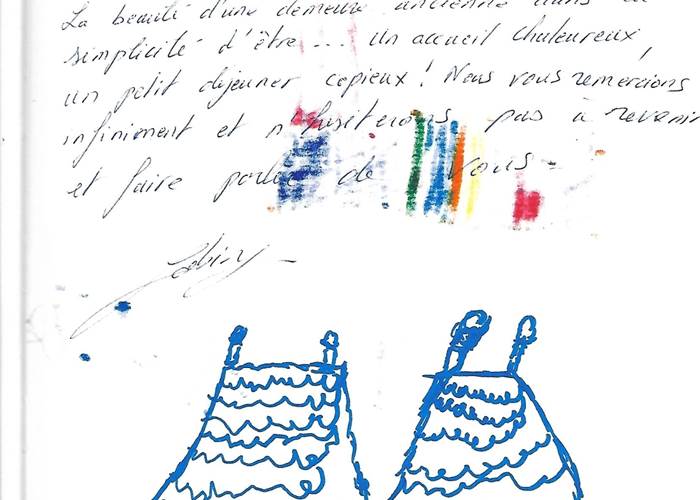 La beauté d'une demeure ancienne dans la
simplicité d'être... Un accueil chaleureux,
un petit déjeuner copieux! Nous vous remercions
infiniment et n'hésiterons pas à revenir
et faire parler de vous -